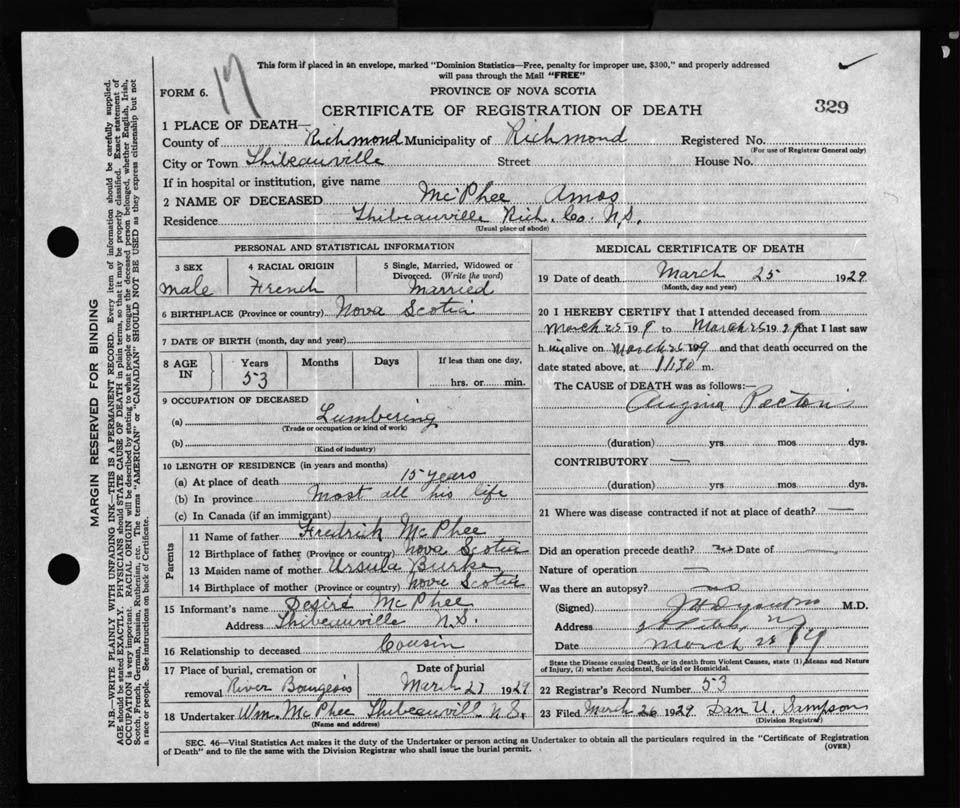 17
This form if placed in an envelope, marked "Dominion Statistics—Free, penalty for improper use, $300," and properly addressed
will pass through the Mail "FREE"
FORM 6.
PROVINCE OF NOVA SCOTIA
CERTIFICATE OF REGISTRATION OF DEATH
329
1 PLACE OF DEATH—
County of Richmond Municipality of Richmond Registered No.
(For use of Registrar General only)
City or Town Thibeauville Street House No.
If in hospital or institution, give name
2 NAME OF DECEASED McPhee Amos
Residence Thibeauville Rich. Co. N.S.
(Usual place of abode)
PERSONAL AND STATISTICAL INFORMATION
3 SEX 4 RACIAL ORIGIN 5 Single, Married, Widowed or
Divorced. (Write the word)
male French Married
6 BIRTHPLACE (Province or country) Nova Scotia
7 DATE OF BIRTH (month, day and year)
8 AGE IN Years Months Days If less than one day,
53 hrs. or min.
9 OCCUPATION OF DECEASED
(a) Lumbering
(Trade or occupation or kind of work)
(b)
(Kind of industry)
10 LENGTH OF RESIDENCE (in years and months)
(a) At place of death 15 years
(b) In province Most all his life
(c) In Canada (if an immigrant)
Parents
11 Name of father Fredrick McPhee
12 Birthplace of father (Province or country) Nova Scotia
13 Maiden name of mother Ursula Burke
14 Birthplace of mother (Province or country) Nova Scotia
15 Informant's name Desire McPhee
Address Thibeauville N.S.
16 Relationship to deceased Cousin
17 Place of burial, cremation or Date of burial
removal River Bourgeois March 27 1929
18 Undertaker Wm. McPhee Thibeauvill N.S.
(Name and address)
MEDICAL CERTIFICATE OF DEATH
19 Date of death March 25 1929
(Month, day and year)
20 I HEREBY CERTIFY that I attended deceased from
March 25 19 to March 25 1929 that I last saw
h im alive on March 25 19 and that death occurred on the
date stated above, at 11.30 m.
The CAUSE OF DEATH was as follows:—
Angina Pectoris
(duration) yrs mos dys.
CONTRIBUTORY —
(duration) yrs. mos. dys.
21 Where was disease contracted if not at place of death? —
Did an operation precede death? Date of —
Nature of operation —
Was there an autopsy? no
(Signed) M.D.
Address
Date March 28
State the Disease causing Death, or in death from Violent Causes, state (1) Means and Nature
of Injury, (2) whether Accidental, Suicidal or Homicidal.
22 Registrar's Record Number 53
23 Filed March 26 1929 Dan U. Sampson
(Division Registrar)
SEC. 46—Vital Statistics Act makes it the duty of the Undertaker or person acting as Undertaker to obtain all the particulars required in the "Certificate of Registration
of Death" and to file the same with the Division Registrar who shall issue the burial permit. (OVER)
MARGIN RESERVED FOR BINDING
N.B.—WRITE PLAINLY WITH UNFADING INK—THIS IS A PERMANENT RECORD. Every item of information should be carefully supplied.
AGE should be stated EXACTLY. PHYSICIANS should STATE CAUSE OF DEATH in plain terms, so that it may be properly classified. Exact statement of
OCCUPATION is very important. RACIAL ORIGIN will be described by stating to what people or tongue the deceased person belonged, whether English, Irish,
Scotch, French, German, Russian, Ruthenian, etc. The terms "AMERICAN" or "CANADIAN" SHOULD NOT BE USED as they express citizenship but not
a race or people. See instructions on back of Certificate.